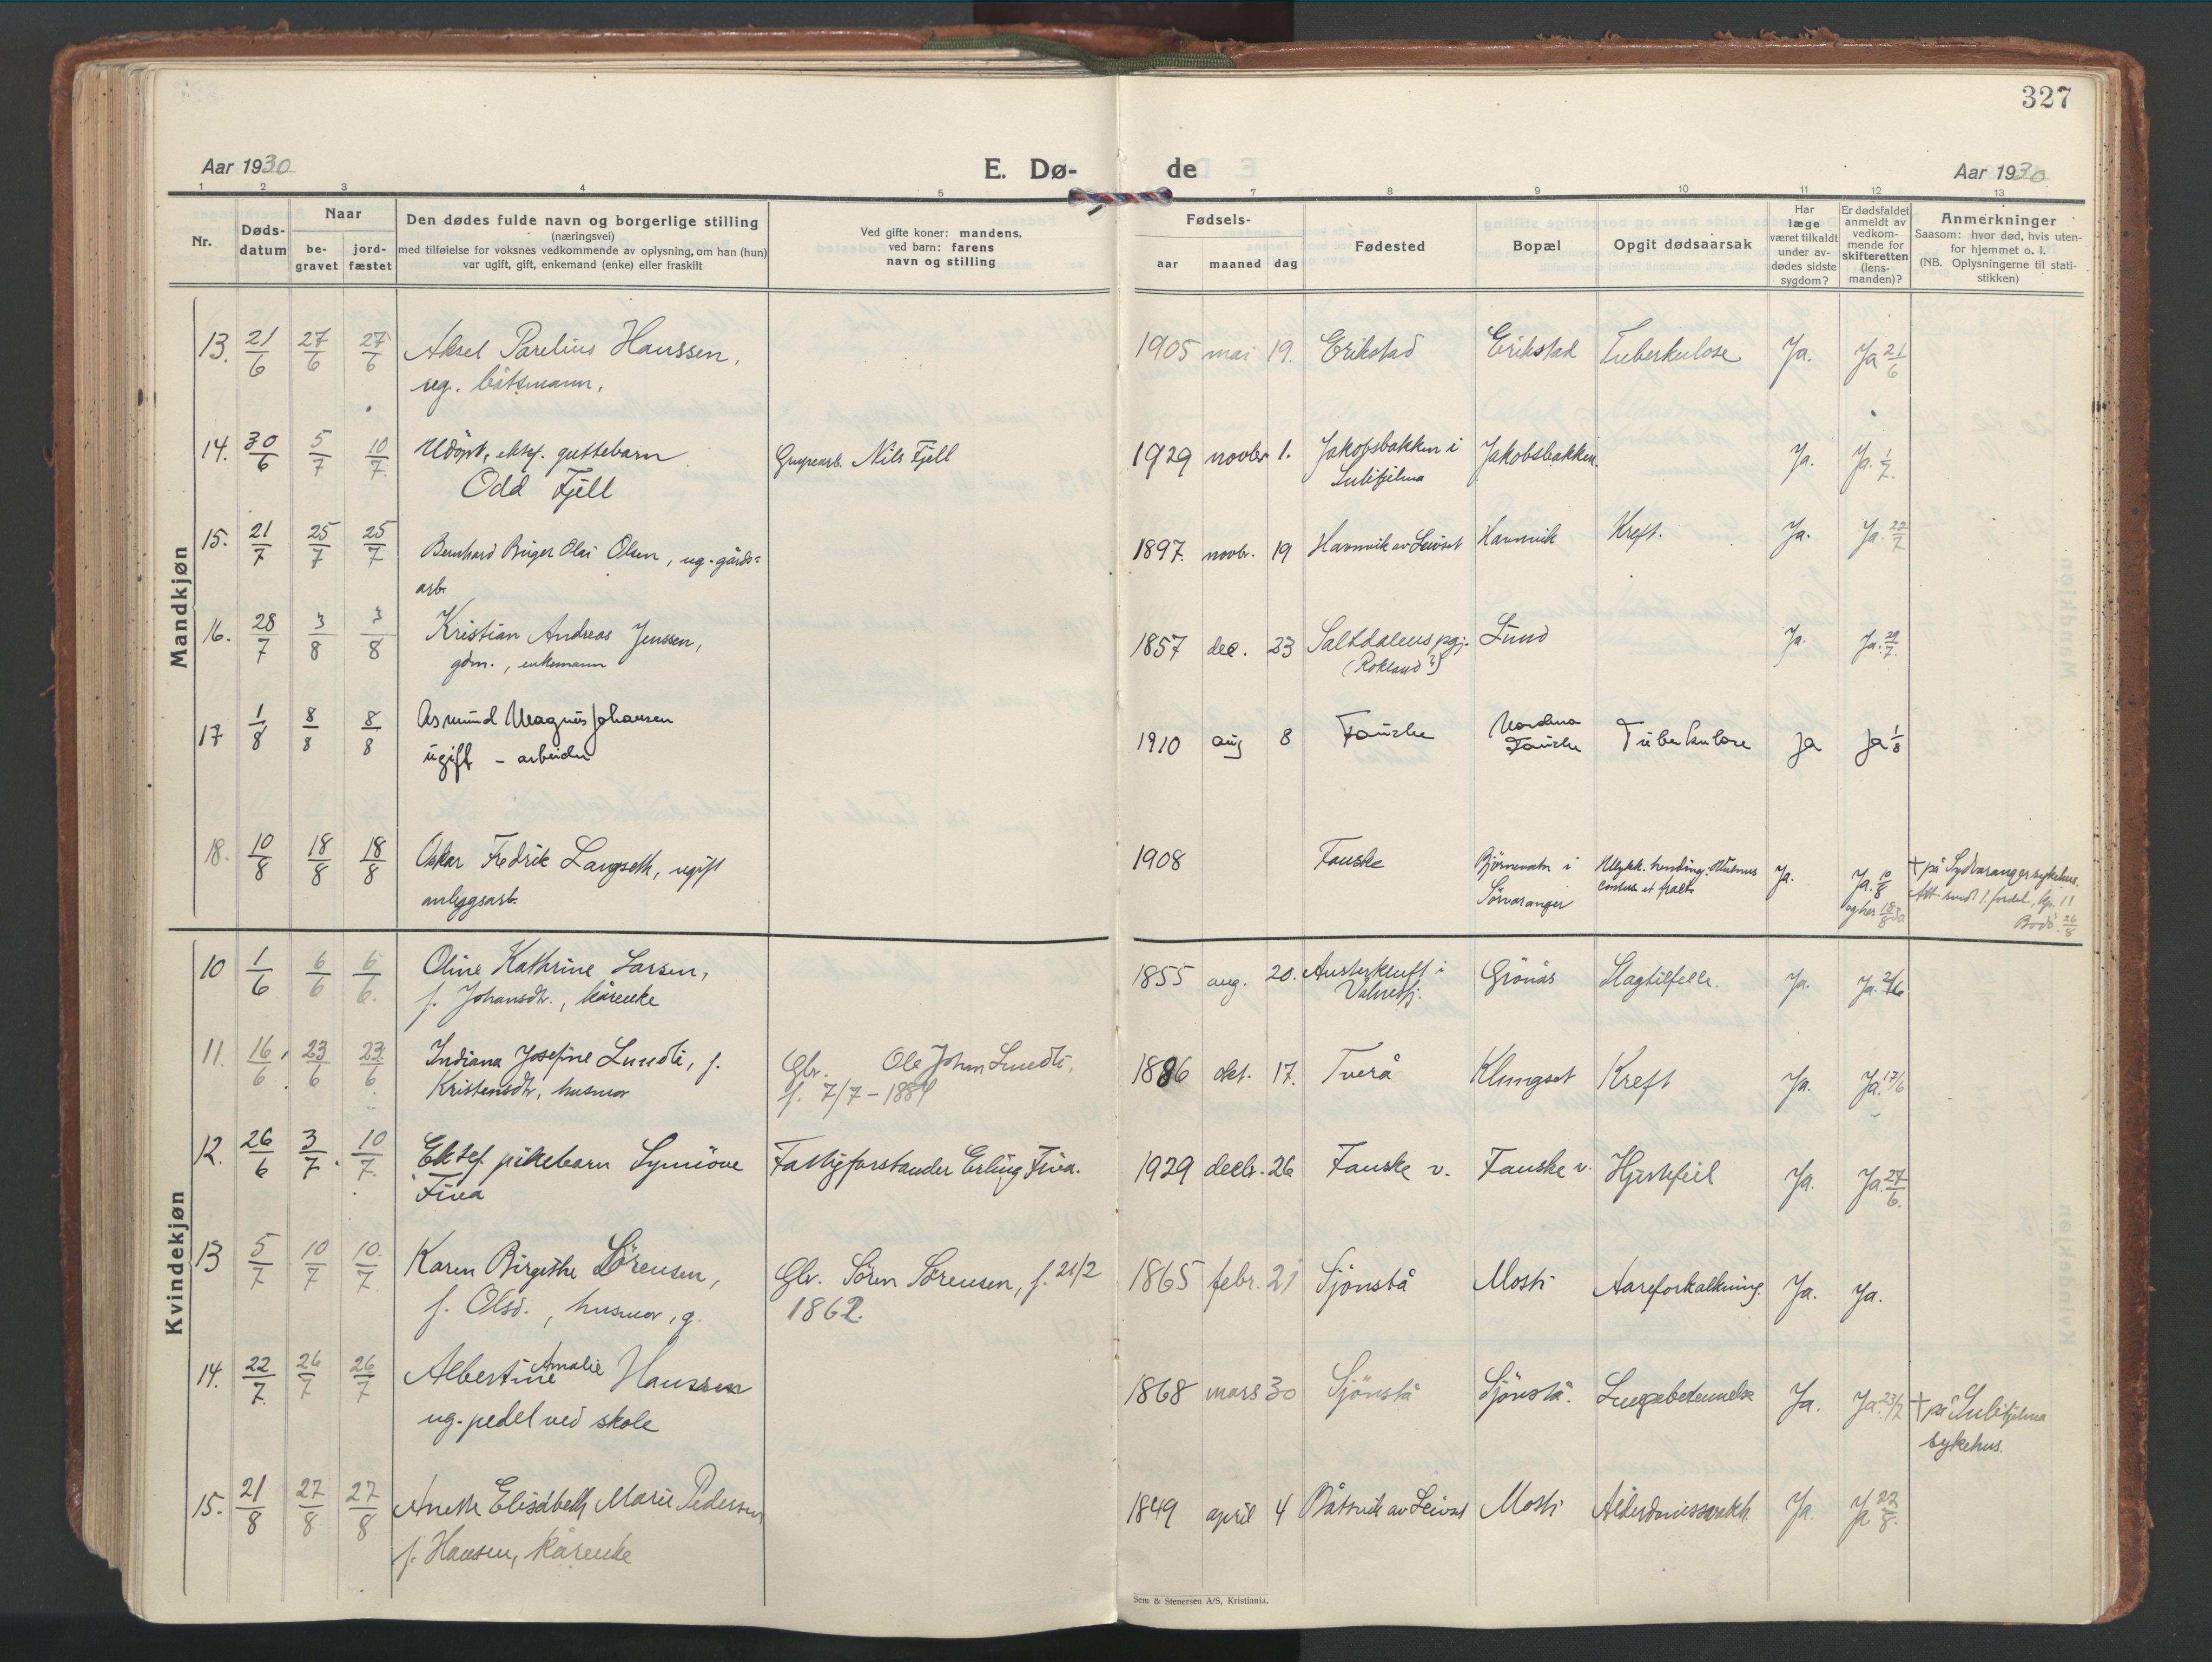 327
Aar 1930
E. Dø-
de
Aar 1930
1 2 3 4 5 7 8 9 10 11 12 13
Nr.
Døds-
datum
Naar
be-
gravet
jord-
fæstet
Den dødes fulde navn og borgerlige stilling
(næringsvei)
med tilføielse for voksnes vedkommende av oplysning, om han (hun)
var ugift, gift, enkemand (enke) eller fraskilt
Ved gifte koner: mandens,
ved barn: farens
navn og stilling
Fødsels-
aar maaned dag
Fødested
Bopæl
Opgit dødsaarsak
Har
læge
været tilkaldt
under av-
dødes sidste
sygdom?
Er dødsfaldet
anmeldt av
vedkom-
mende for
skifteretten
(lens-
manden)?
Anmerkninger
Saasom: hvor død, hvis uten-
for hjemmet o. l.
(NB. Oplysningerne til stati-
stikken)
Mandkjøn
13. 21/6 27/6 27/6 Aksel Parelius Hanssen, 1905 mai 19. Erikstad Erikstad Tuberkulose Ja. Ja 21/6
ug. båtsmann.
14. 30/6 5/7 10/7 Udöpt, ektef. guttebarn Nils Fjell 1929 novbr 1. Jakobsbakken i Jakobsbakken. Ja. Ja. 1/7.
Odd Fjell Sulitjelma
15. 21/7 25/7 25/7 Bernhard Birger Olai Olsen, ug. gårds= 1897. novbr. 19 Havnvik av Leivset Havnvik Kreft. Ja. Ja. 22/7
arb.
16. 28/7 3/8 3/8 Kristian Andreas Jenssen, 1857 dec. 23 Saltdalens pgj. Lund Ja. Ja. 29/7.
gdm., enkemann (Rokland?)
17 1/8 8/8 8/8 Asmund Magnus Johansen 1910 aug 8 Fauske Nordre Tuberkulose ja ja 1/8
ugift - arbeider Fauske
18. 10/8 18/8 18/8 Oskar Fredrik Langseth, ugift 1908 Fauske Bjørnevatn i Ulykk. hending. Ja. Ja. 10/8 † på Sydvaranger sykehus.
anleggsarb. Sørvaranger og her 18/8
Bodö 26/8
Kvindekjøn
10 1/6 6/6 6/6. Oline Kathrine Larsen, 1855 aug. 20. Austerkluft i Grönås Slagtilfelle. Ja. Ja. 2/6
f. Johansdtr., kårenke Valnesfj.
11. 16/6 23/6 23/6 Indiana Josefine Lundli, f. Gbr. Ole Johan Lundli, 1886 okt. 17. Tverå Klungset Kreft Ja. Ja. 17/6
Kristensdtr, husmor f. 7/7 - 1884
12. 26/6 3/7. 10/7. Ektef. pikebarn Synnöve Fattigforstander Erling Fiva. 1929 decbr. 26 Fauske v. Fauske v. Hjertefeil Ja. Ja. 27/6.
Fiva
13 5/7 10/7 10/7. Karen Birgithe Sörensen, Gbr. Sören Sörensen, f. 21/2 1865 febr. 21 Sjönstå Mosti Aareforkalkning. Ja. Ja.
f. Olsd., husmor, g. 1862.
14. 22/7. 26/7 26/7 Albertine Amalie Hanssen 1868 mars 30 Sjönstå Sjönstå. Lungebetennelse Ja. Ja. 23/7 † på Sulitjelma
ug. pedel ved skole sykehus.
15. 21/8 27/8 27/8 Anette Elisabeth Marie Pedersen 1849 april 4 Båtsvik av Leivset Mosti Alderdomssvakh. Ja. Ja 22/8.
f. Hansen, kårenke
Sem & Stenersen A/S, Kristiania.